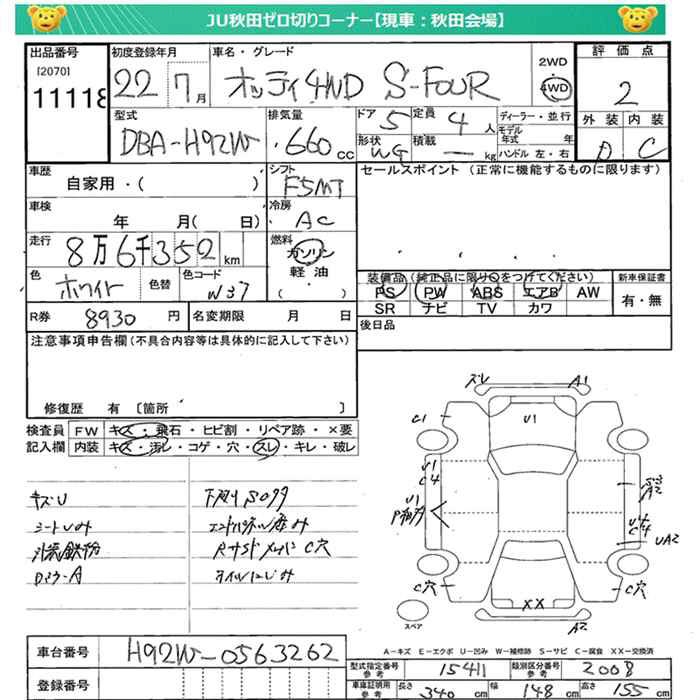 JU秋田ゼロ切りコーナー【現車：秋田会場】
出品番号 初度登録年月 車名・グレード 評価点
[2070]
11118 22 7月 オッティ4WD S-FOUR 2WD 4WD 2
型式 排気量 ドア 5 定員 4人 ディーラー・並行 外装 内装
DBA-H92W .660cc 形状 WG 積載 ー kg モデル年式 年 ハンドル 左・右 D C
車歴 シフト セールスポイント (正常に機能するものに限ります)
自家用・( ) F5MT
車検 冷房
年 月( 日) AC
走行 燃料
8万6千352km ガソリン
軽油
・( )
色 色替 色コード 装備品(純正品に限り○をつけてください) 新車保証書
ホワイト W37 PS PW ABS エアB AW 有・無
SR ナビ TV カワ
R券 8930円 名変期限 月 日 後日品
注意事項申告欄(不具合内容等は具体的に記入して下さい)
修復歴 有 〔箇所 〕
検査員 FW キズ・飛石・ヒビ割・リペア跡・×要
記入欄 内装 キズ・汚レ・コゲ・穴・スレ・キレ・破レ
キズU 下廻りSOクタ
シートUみ
外装鉄粉 C穴
ズレ A1
C1 U1
U1
C4
U1
A2
UA2
C4
C穴 XX C穴
スペア A2
A-キズ E-エクボ U-凹み W-補修跡 S-サビ C-腐食 XX-交換済
車台番号 H92W-0563262
登録番号
型式指定番号 参考 15411 類別区分番号 参考 2008
車庫証明用 参考 長さ 340cm 幅 148cm 高さ 155cm